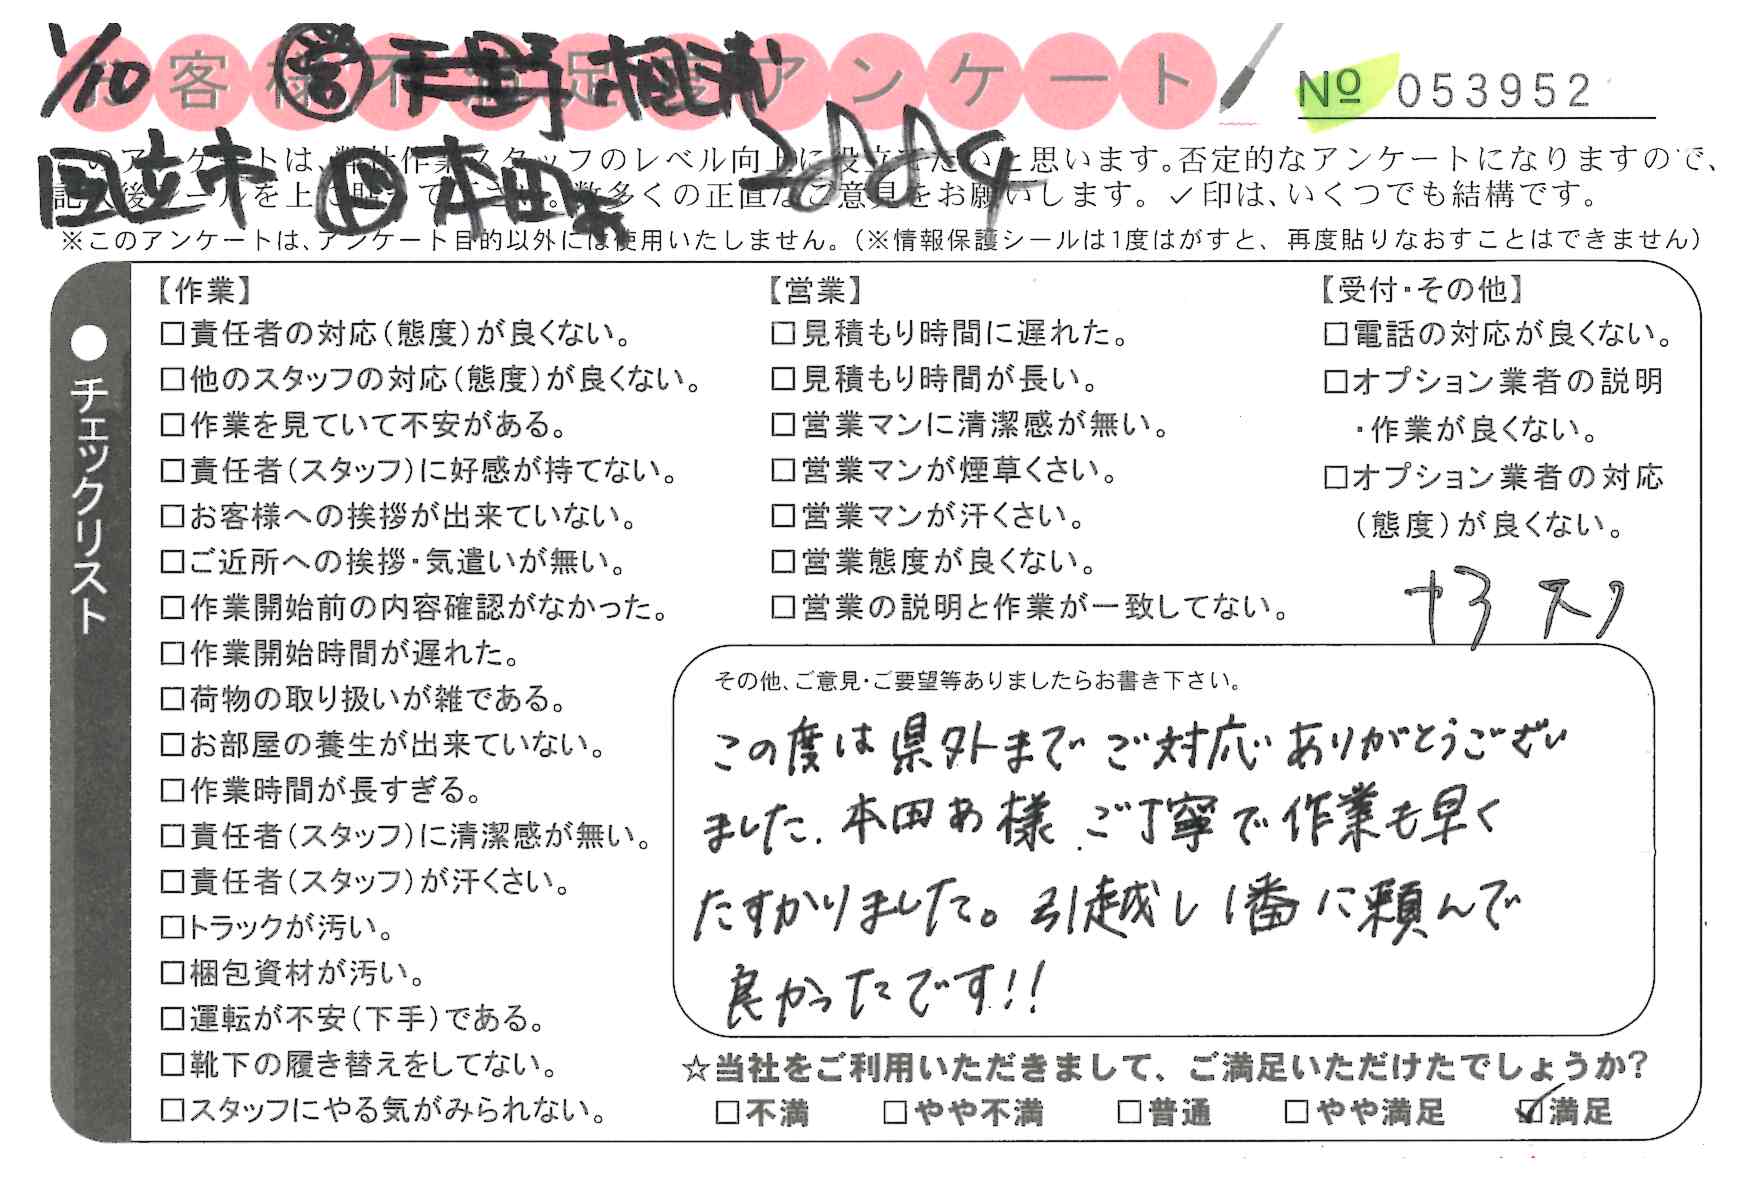 1/10 営 相浦
お客様不満足度アンケート
№ 053952
国立市 本田
このアンケートは、弊社作業スタッフのレベル向上に役立てたいと思います。否定的なアンケートになりますので、
記入後シールを上に貼って下さい。数多くの正直なご意見をお願いします。✓印は、いくつでも結構です。
※このアンケートは、アンケート目的以外には使用いたしません。(※情報保護シールは1度はがすと、再度貼りなおすことはできません)
●チェックリスト
【作業】
□責任者の対応(態度)が良くない。
□他のスタッフの対応(態度)が良くない。
□作業を見ていて不安がある。
□責任者(スタッフ)に好感が持てない。
□お客様への挨拶が出来ていない。
□ご近所への挨拶・気遣いが無い。
□作業開始前の内容確認がなかった。
□作業開始時間が遅れた。
□荷物の取り扱いが雑である。
□お部屋の養生が出来ていない。
□作業時間が長すぎる。
□責任者(スタッフ)に清潔感が無い。
□責任者(スタッフ)が汗くさい。
□トラックが汚い。
□梱包資材が汚い。
□運転が不安(下手)である。
□靴下の履き替えをしてない。
□スタッフにやる気がみられない。
【営業】
□見積もり時間に遅れた。
□見積もり時間が長い。
□営業マンに清潔感が無い。
□営業マンが煙草くさい。
□営業マンが汗くさい。
□営業態度が良くない。
□営業の説明と作業が一致してない。
【受付・その他】
□電話の対応が良くない。
□オプション業者の説明
・作業が良くない。
□オプション業者の対応
(態度)が良くない。
その他、ご意見・ご要望等ありましたらお書き下さい。
この度は県外までご対応ありがとうござい
ました。本田あ様 ご丁寧で作業も早く
たすかりました。引越し1番に頼んで
良かったです!!
☆当社をご利用いただきまして、ご満足いただけたでしょうか?
□不満 □やや不満 □普通 □やや満足 ☑満足